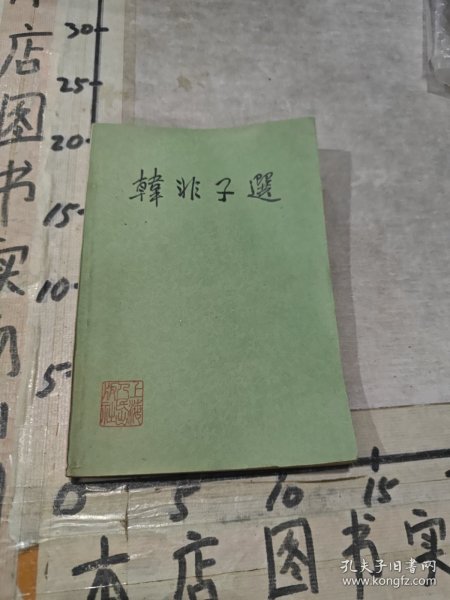 韓非子選
30
店
25
图
20
书
15
实
10
5
0
5
10
15
本店图书实
孔夫子旧书网
www.kongfz.com